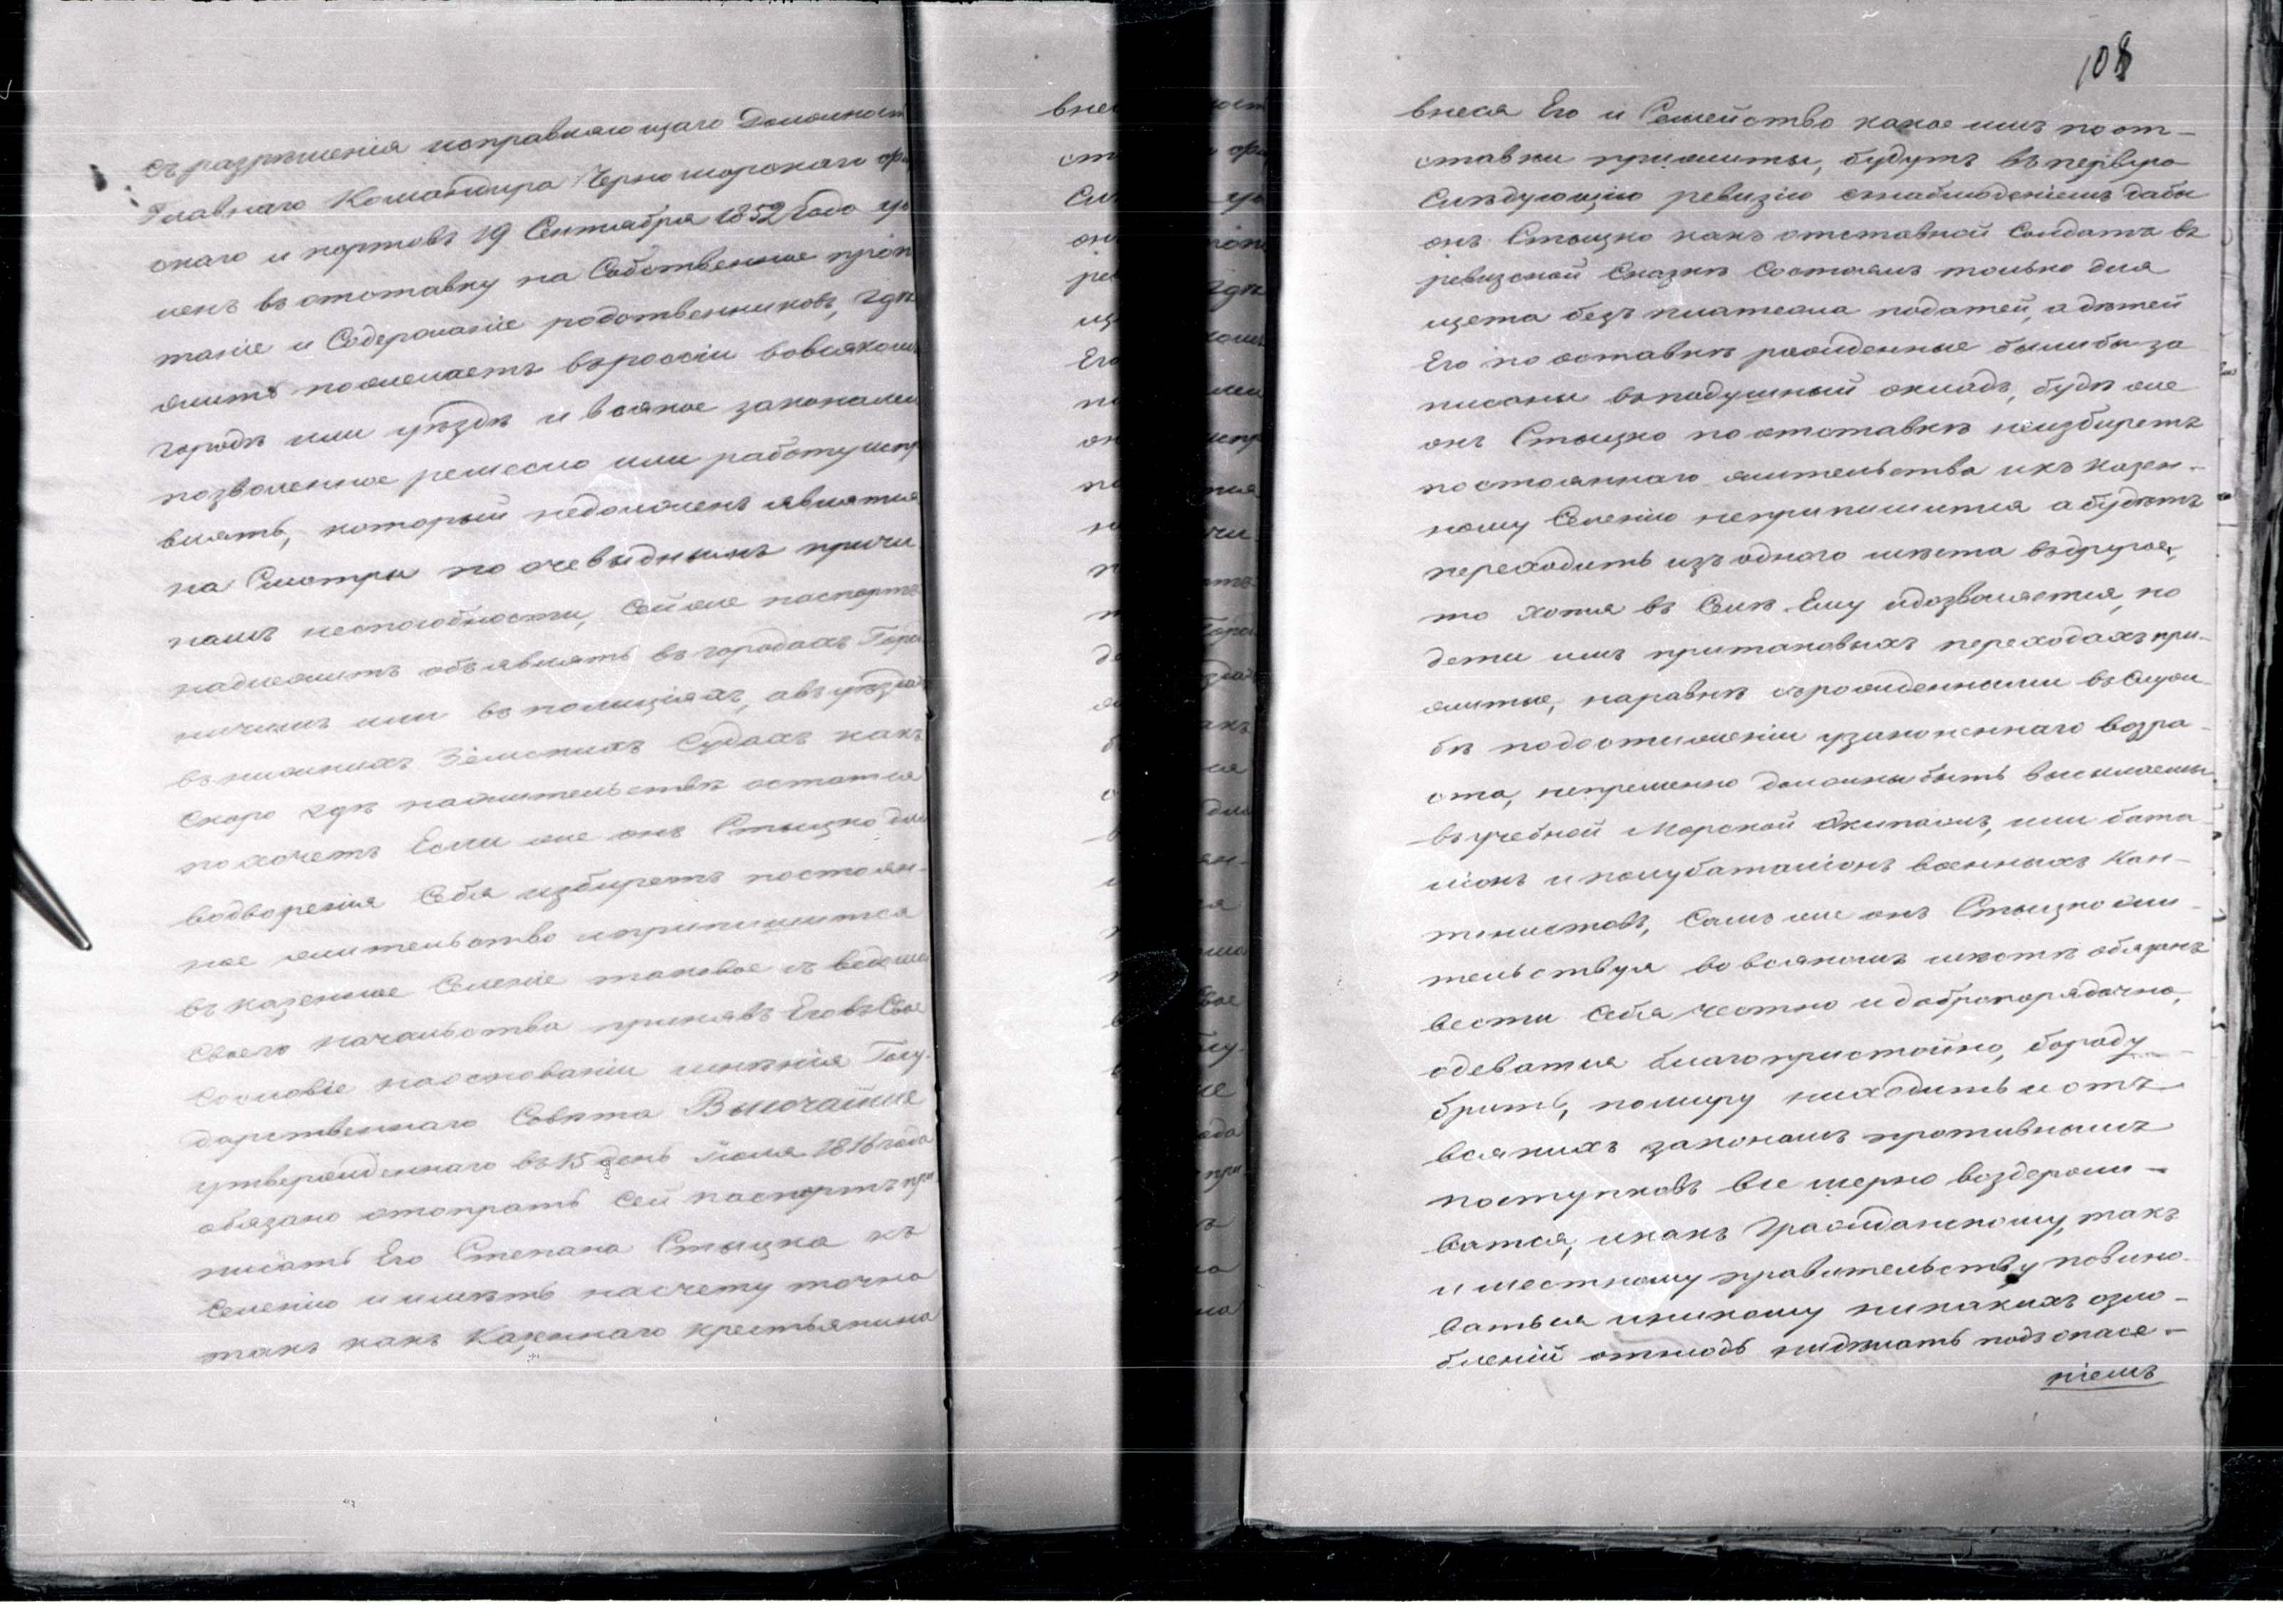 съ разрѣшенія исправляющаго Должност
Главнаго Командира Черноморскаго фл
скаго и портовъ 19 Сентября 1852 Года ув
ленъ въ отставку на Собственное пропи
таніе и Содержаніе родственниковъ, гдѣ
жить пожелаетъ въ россіи во всякомъ
городѣ или уѣздѣ и всякое законами
позволенное ремесло или работу испр
влять, который недолженъ являтся
на Смотры по очевиднымъ причи
намъ неспособности, Сей же паспортъ
надлежитъ объявлять въ городахъ Горо
ничимъ или въ полиціяхъ, а въ уѣздах
въ нижнихъ Земскихъ Судахъ какъ
Скоро гдѣ на жительствѣ остатся
похочетъ Если же онъ Стыцко для
водворенія Себя избиретъ постоян-
ное жительство и припишится
въ казенное Селеніе таковое съ ведома
Своего начальства принявъ Его въ Свое
Сословіе на основаніи мнѣнія Госу-
дарственнаго Совѣта Высочайше
утвержденнаго въ 15 день Іюля 1816 года
обязано отопрать Сей паспортъ при
писать Его Степана Стыцка къ
Селенію и имѣть на счету точно
такъ какъ Казеннаго крестьянина
108
внеся Его и Семейство какое имъ по от-
ставки прижиты, будутъ въ первую
Слѣдующію ревизію снаблюденіемъ дабы
онъ Стыцко какъ отставной Солдатъ въ
ревизской Сказкѣ Состоялъ только для
щета безъ платежа податей, а дѣтей
Его по оставкѣ рожденные были бы за
писаны въ подушный окладъ, будѣ же
онъ Стыцко по отставкѣ неизбиретъ
постояннаго жительства и къ казен-
ному Селенію неприпишится а будетъ
переходить изъ одного мѣста въ другое,
то хотя въ Семъ Ему и дозволяется, но
дети имъ притаковыхъ переходахъ при-
житые, наравнѣ съ рожденными въ служ
бѣ по достиженіи узаконеннаго возра-
ста, непременно должны быть высылаемы
въ учебной Морской Экипажъ, или бата-
ліонъ и полубаталіонъ военныхъ Кан-
тенистовъ, Самъ же онъ Стыцко жи-
тельствуя во всякомъ мѣстѣ обязанъ
вести Себя честно и добропорядочно,
одеватся благопристойно, бороду
брить, по миру ниходить и отъ
всякихъ законамъ противнымъ
поступковъ все мерно воздержи-
ватся, и какъ Гражданскому, такъ
и местному правительству повино-
ваться и никому никакихъ озло-
бленій отнюдь нидѣлать подъ опасе-
ніемъ